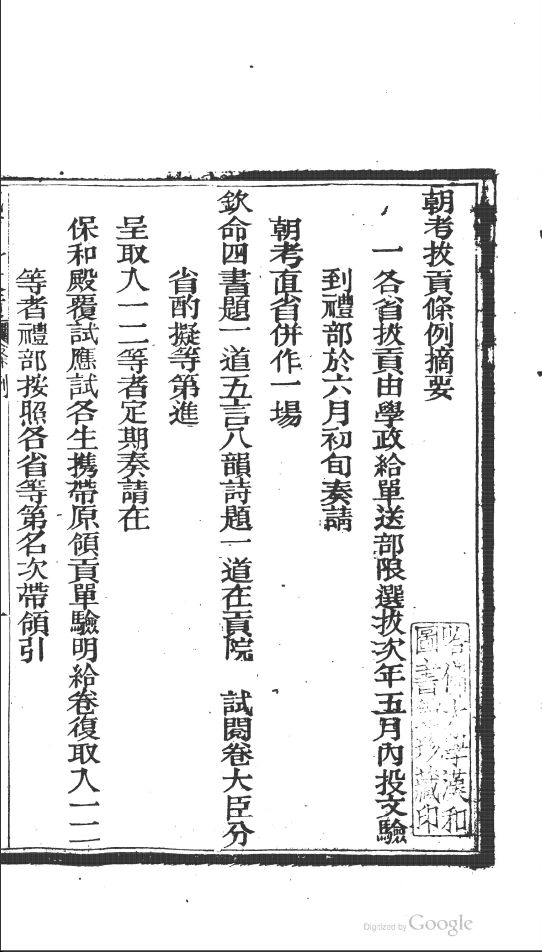 朝考拔貢條例摘要
一各省拔貢由學政給單送部限選拔次年五月內投文驗
到禮部於六月初旬奏請
朝考直省併作一場
欽命四書題一道五言八韻詩題一道在貢院 試閱卷大臣分
省酌擬等第進
呈取入一二等者定期奏請在
保和殿覆試應試各生携帶原領貢單驗明給卷復取入一二
等者禮部按照各省等第名次帶領引
哈佛大學漢和
圖書館珍藏印
Digitized by Google